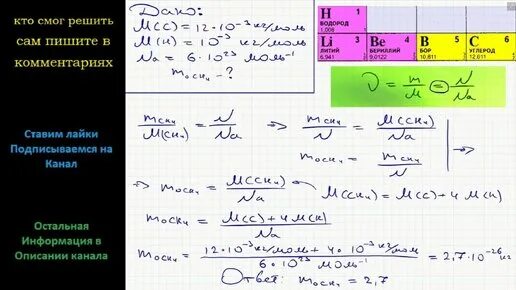 кто смог решить
сам пишите в
комментариях
Ставим лайки
Подписываемся на
Канал
Остальная
Информация в
Описании канала
Дано:
M(C) = 12·10⁻³ кг/моль
M(H) = 10⁻³ кг/моль
Na = 6·10²³ моль⁻¹
m₀CH₄ - ?
H 1
ВОДОРОД
1,008
Li 3 Be 4 B 5 C 6
ЛИТИЙ БЕРИЛЛИЙ БОР УГЛЕРОД
6,941 9,0122 10,811 12,011
ν = m/M = N/Na
mCH₄/M(CH₄) = N/Na => mCH₄/N = M(CH₄)/Na
m₀CH₄ = mCH₄/N
=> m₀CH₄ = M(CH₄)/Na M(CH₄) = M(C) + 4 M(H)
m₀CH₄ = M(C) + 4 M(H)/Na
m₀CH₄ = 12·10⁻³ кг/моль + 4·10⁻³ кг/моль/6·10²³ моль⁻¹ = 2,7·10⁻²⁶ кг
Ответ: m₀CH₄ = 2,7